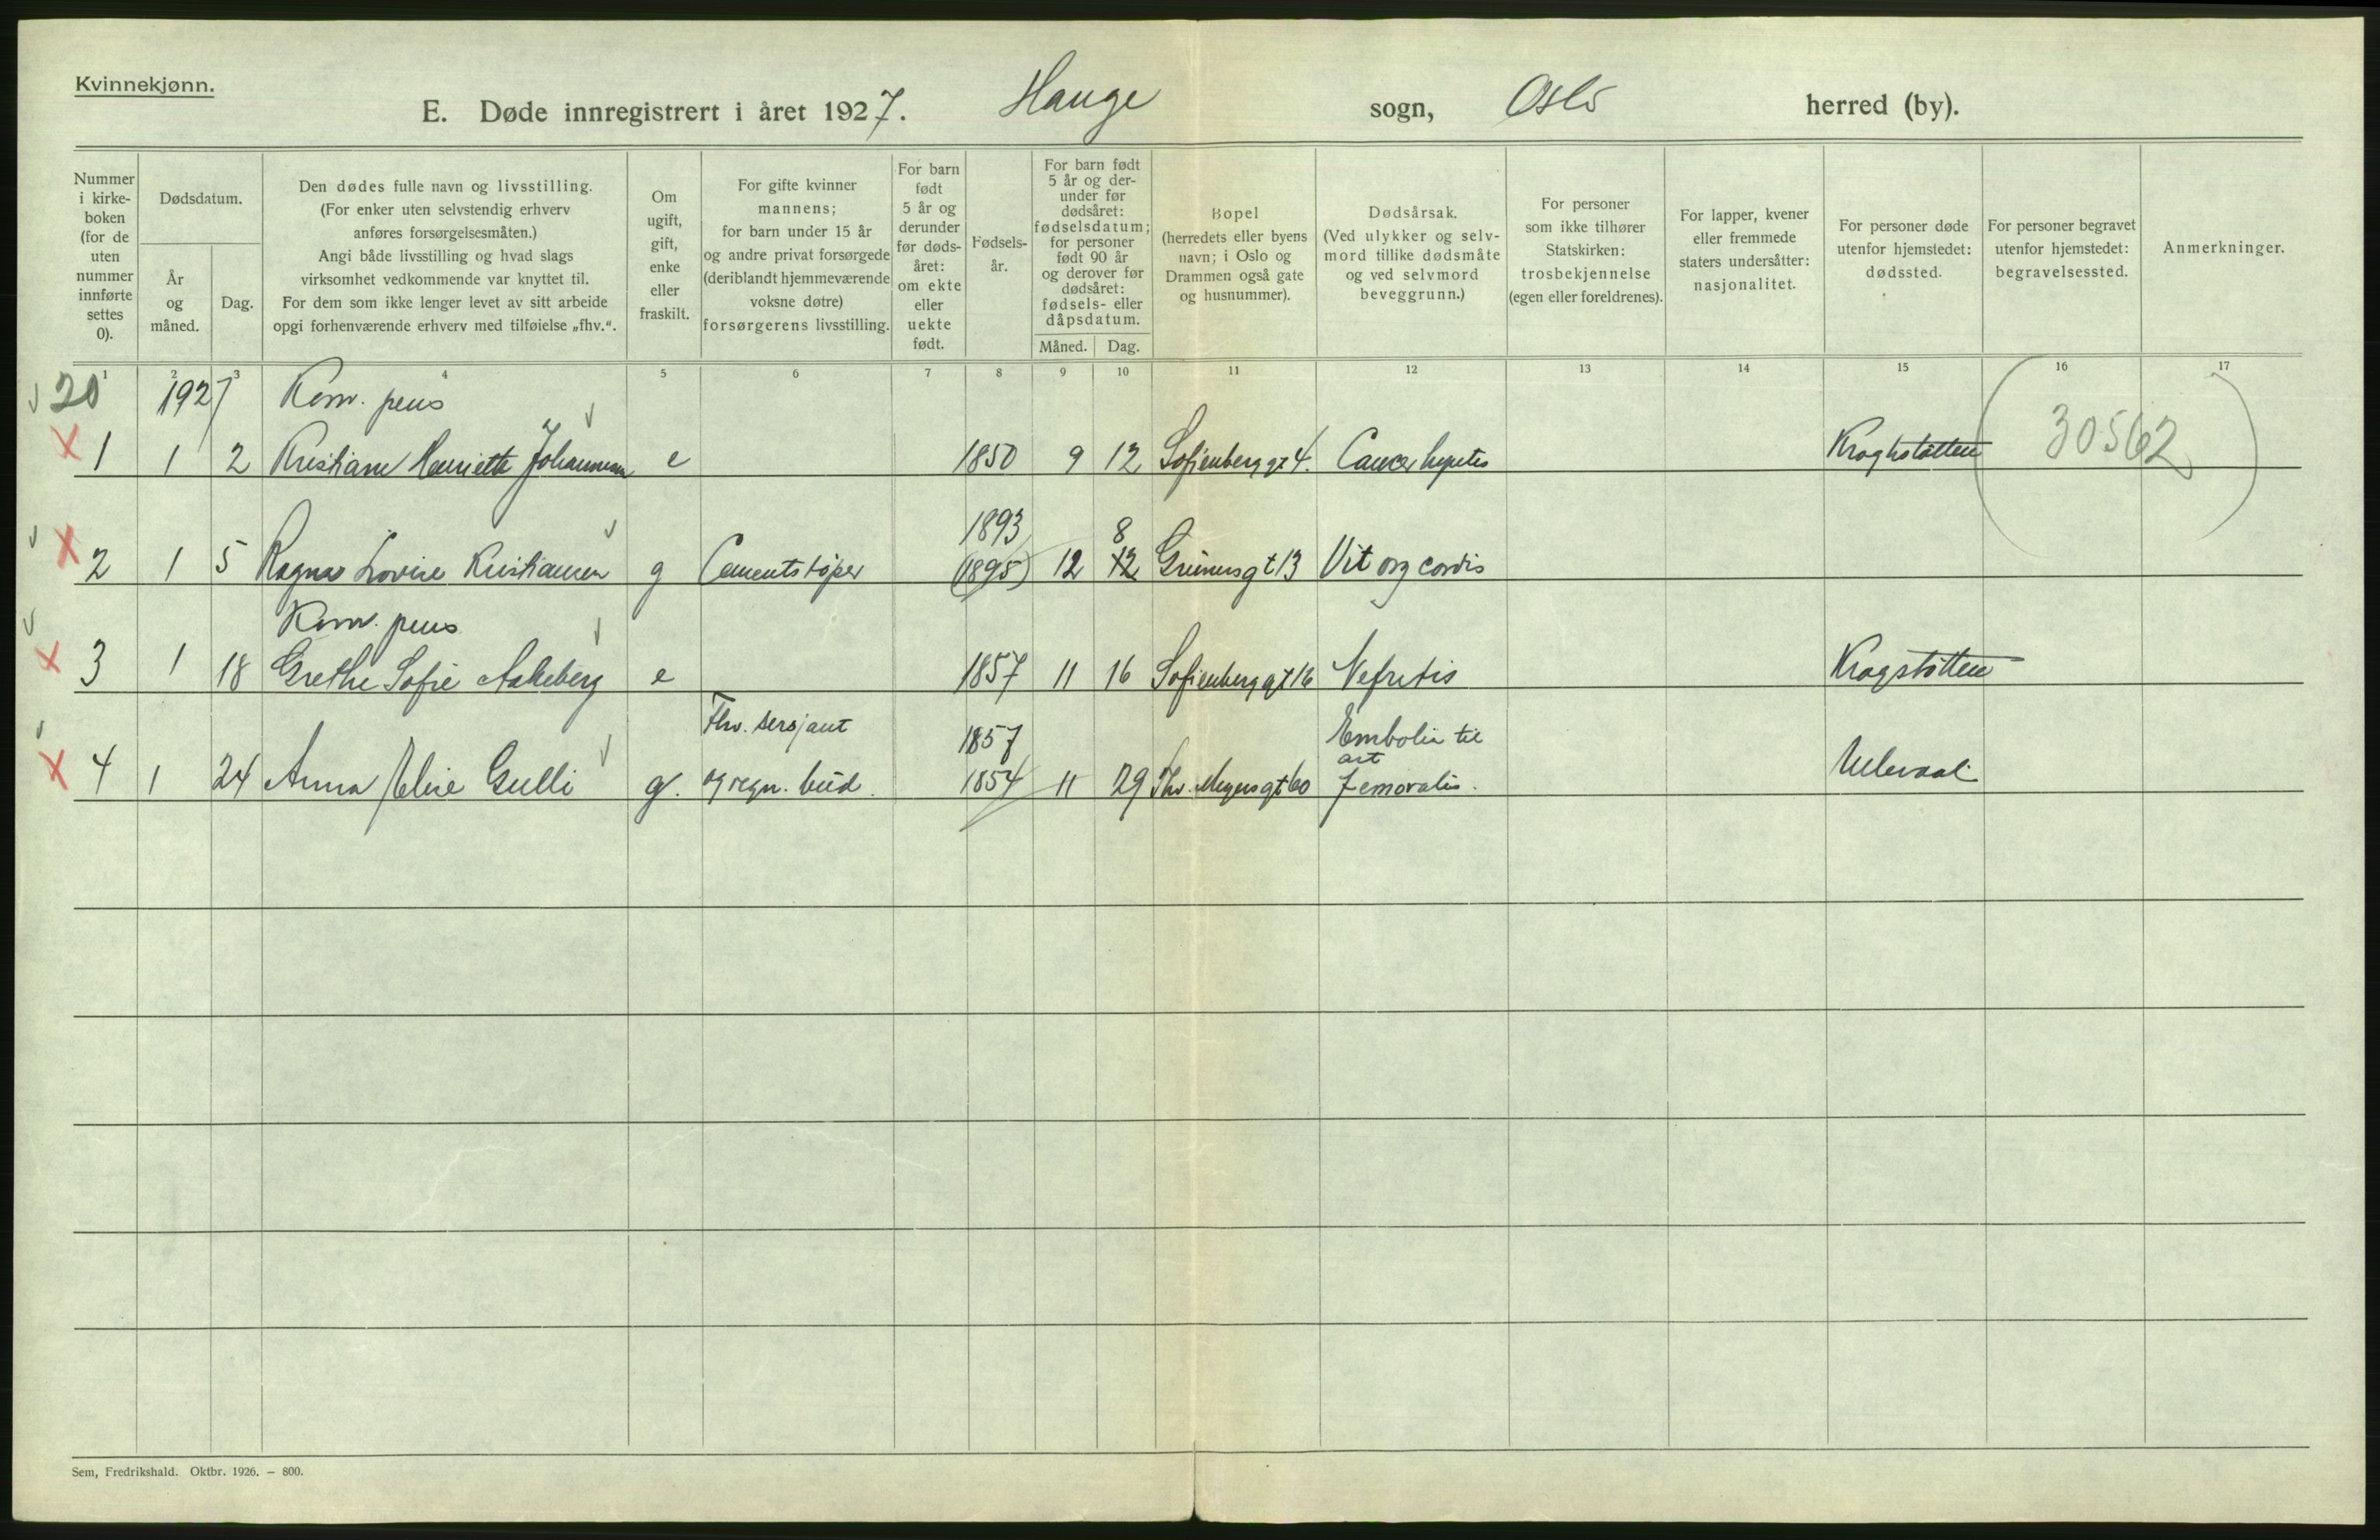 Kvinnekjønn.
E. Døde innregistrert i året 1927. Hauge sogn, Oslo herred (by).
Nummer i kirke- boken (for de uten nummer innførte settes 0).
Dødsdatum.
År og måned.
Dag.
Den dødes fulle navn og livsstilling.
(For enker uten selvstendig erhverv
anføres forsørgelsesmåten.)
Angi både livsstilling og hvad slags
virksomhet vedkommende var knyttet til.
For dem som ikke lenger levet av sitt arbeide
opgi forhenværende erhverv med tilføielse „fhv.“.
Om ugift, gift, enke eller fraskilt.
For gifte kvinner
mannens;
for barn under 15 år
og andre privat forsørgede
(deriblandt hjemmeværende
voksne døtre)
forsørgerens livsstilling.
For barn født 5 år og derunder før døds- året: om ekte eller uekte født.
Fødsels- år.
For barn født
5 år og der-
under før
dødsåret:
fødselsdatum;
for personer
født 90 år
og derover før
dødsåret:
fødsels- eller
dåpsdatum.
Måned. Dag.
Bopel
(herredets eller byens
navn; i Oslo og
Drammen også gate
og husnummer).
Dødsårsak.
(Ved ulykker og selv-
mord tillike dødsmåte
og ved selvmord
beveggrunn.)
For personer
som ikke tilhører
Statskirken:
trosbekjennelse
(egen eller foreldrenes).
For lapper, kvener
eller fremmede
staters undersåtter:
nasjonalitet.
For personer døde
utenfor hjemstedet:
dødssted.
For personer begravet
utenfor hjemstedet:
begravelsessted.
Anmerkninger.
1 2 3 4 5 6 7 8 9 10 11 12 13 14 15 16 17
20 1927 Kom. pens
1 1 2 Kristiane Henriette Johannesen e 1850 9 12 Sofienberg gt 4. Cancer hepatis Kroghstøtten
30562
1893 8
2 1 5 Ragna Lovise Kristiansen g Cementstøper (1895) 12 12 Grünersgt 13 Vit org cordis
Kom. pens
3 1 18 Grethe Sofie Aakeberg e 1857 11 16 Sofienberg gt 16 Nefritis Krogstøtten
Fhv. sersjant 1857 Emboli til
art
4 1 24 Anna Elise Gulli g. og regn. bud. 1854 11 29 Thv. Meyersgt 60 femoralis. Ulleval
Sem, Fredrikshald. Oktbr. 1926. — 800.